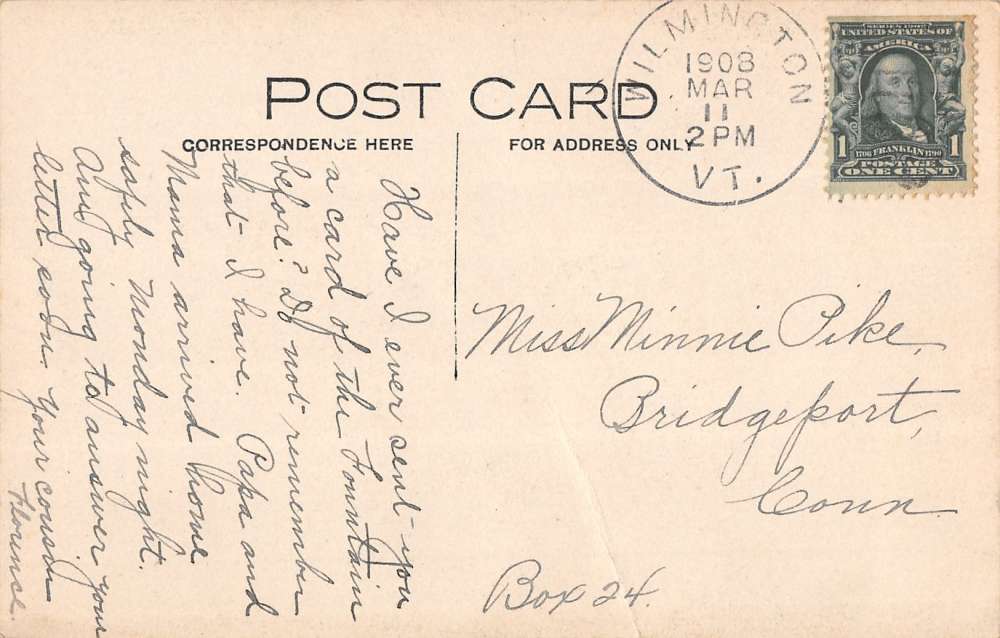 POST CARD
CORRESPONDENCE HERE
FOR ADDRESS ONLY
WILMINGTON
1908
MAR
11
2 PM
VT.
SERIES 1902
UNITED STATES OF
AMERICA
1706 FRANKLIN 1790
1 POSTAGE 1
ONE CENT
Have I ever sent you
a card of the Fountain
before? Do not remember
that I have. Papa and
Mama arrived home
safely Monday night.
Am going to answer your
letter soon. Your cousin
Florence.
Miss Minnie Pike,
Bridgeport,
Conn.
Box 24.